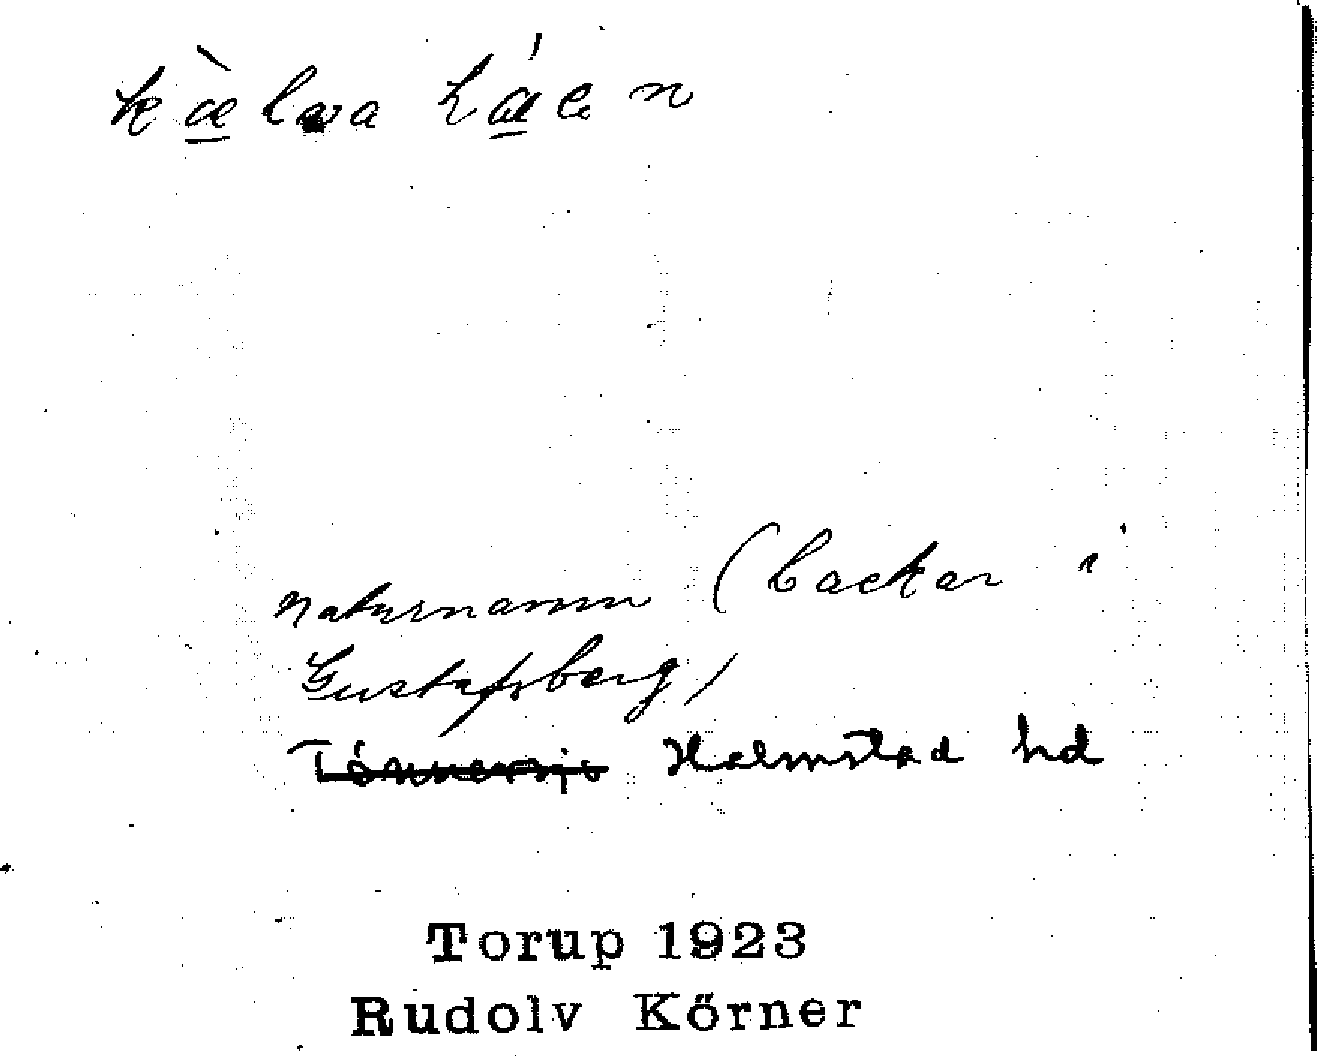 kæ̀lva hǽen
naturnamn (backar i
Gustafsberg)
Tönnersjö Halmstad hd
Torup 1923
Rudolv Körner